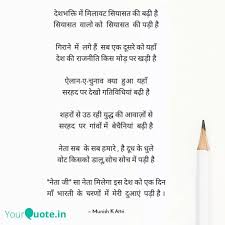 देशभक्ति में मिलावट सियासत की बढ़ी है
सियासत वालो को सियासत की पड़ी है
गिराने में लगे हैं सब एक दूसरे को यहाँ
देश की राजनीति किस मोड़ पर खड़ी है
ऐलान-ए-चुनाव क्या हुआ यहाँ
सरहद पर देखो गतिविधियां बढ़ी है
शहरों से उठ रही युद्ध की आवाज़ों से
सरहद पर गांवों में बेचैनियां बढ़ी है
नेता सब के सब हमारे , है दूध के धुले
वोट किसको डालू,सोच सोच में पड़ी है
"नेता जी" सा नेता मिलेगा इस देश को एक दिन
माँ भारती के चरणों में मेरी दुआएं पड़ी है ।
- Munish K Attri
YourQuote.in